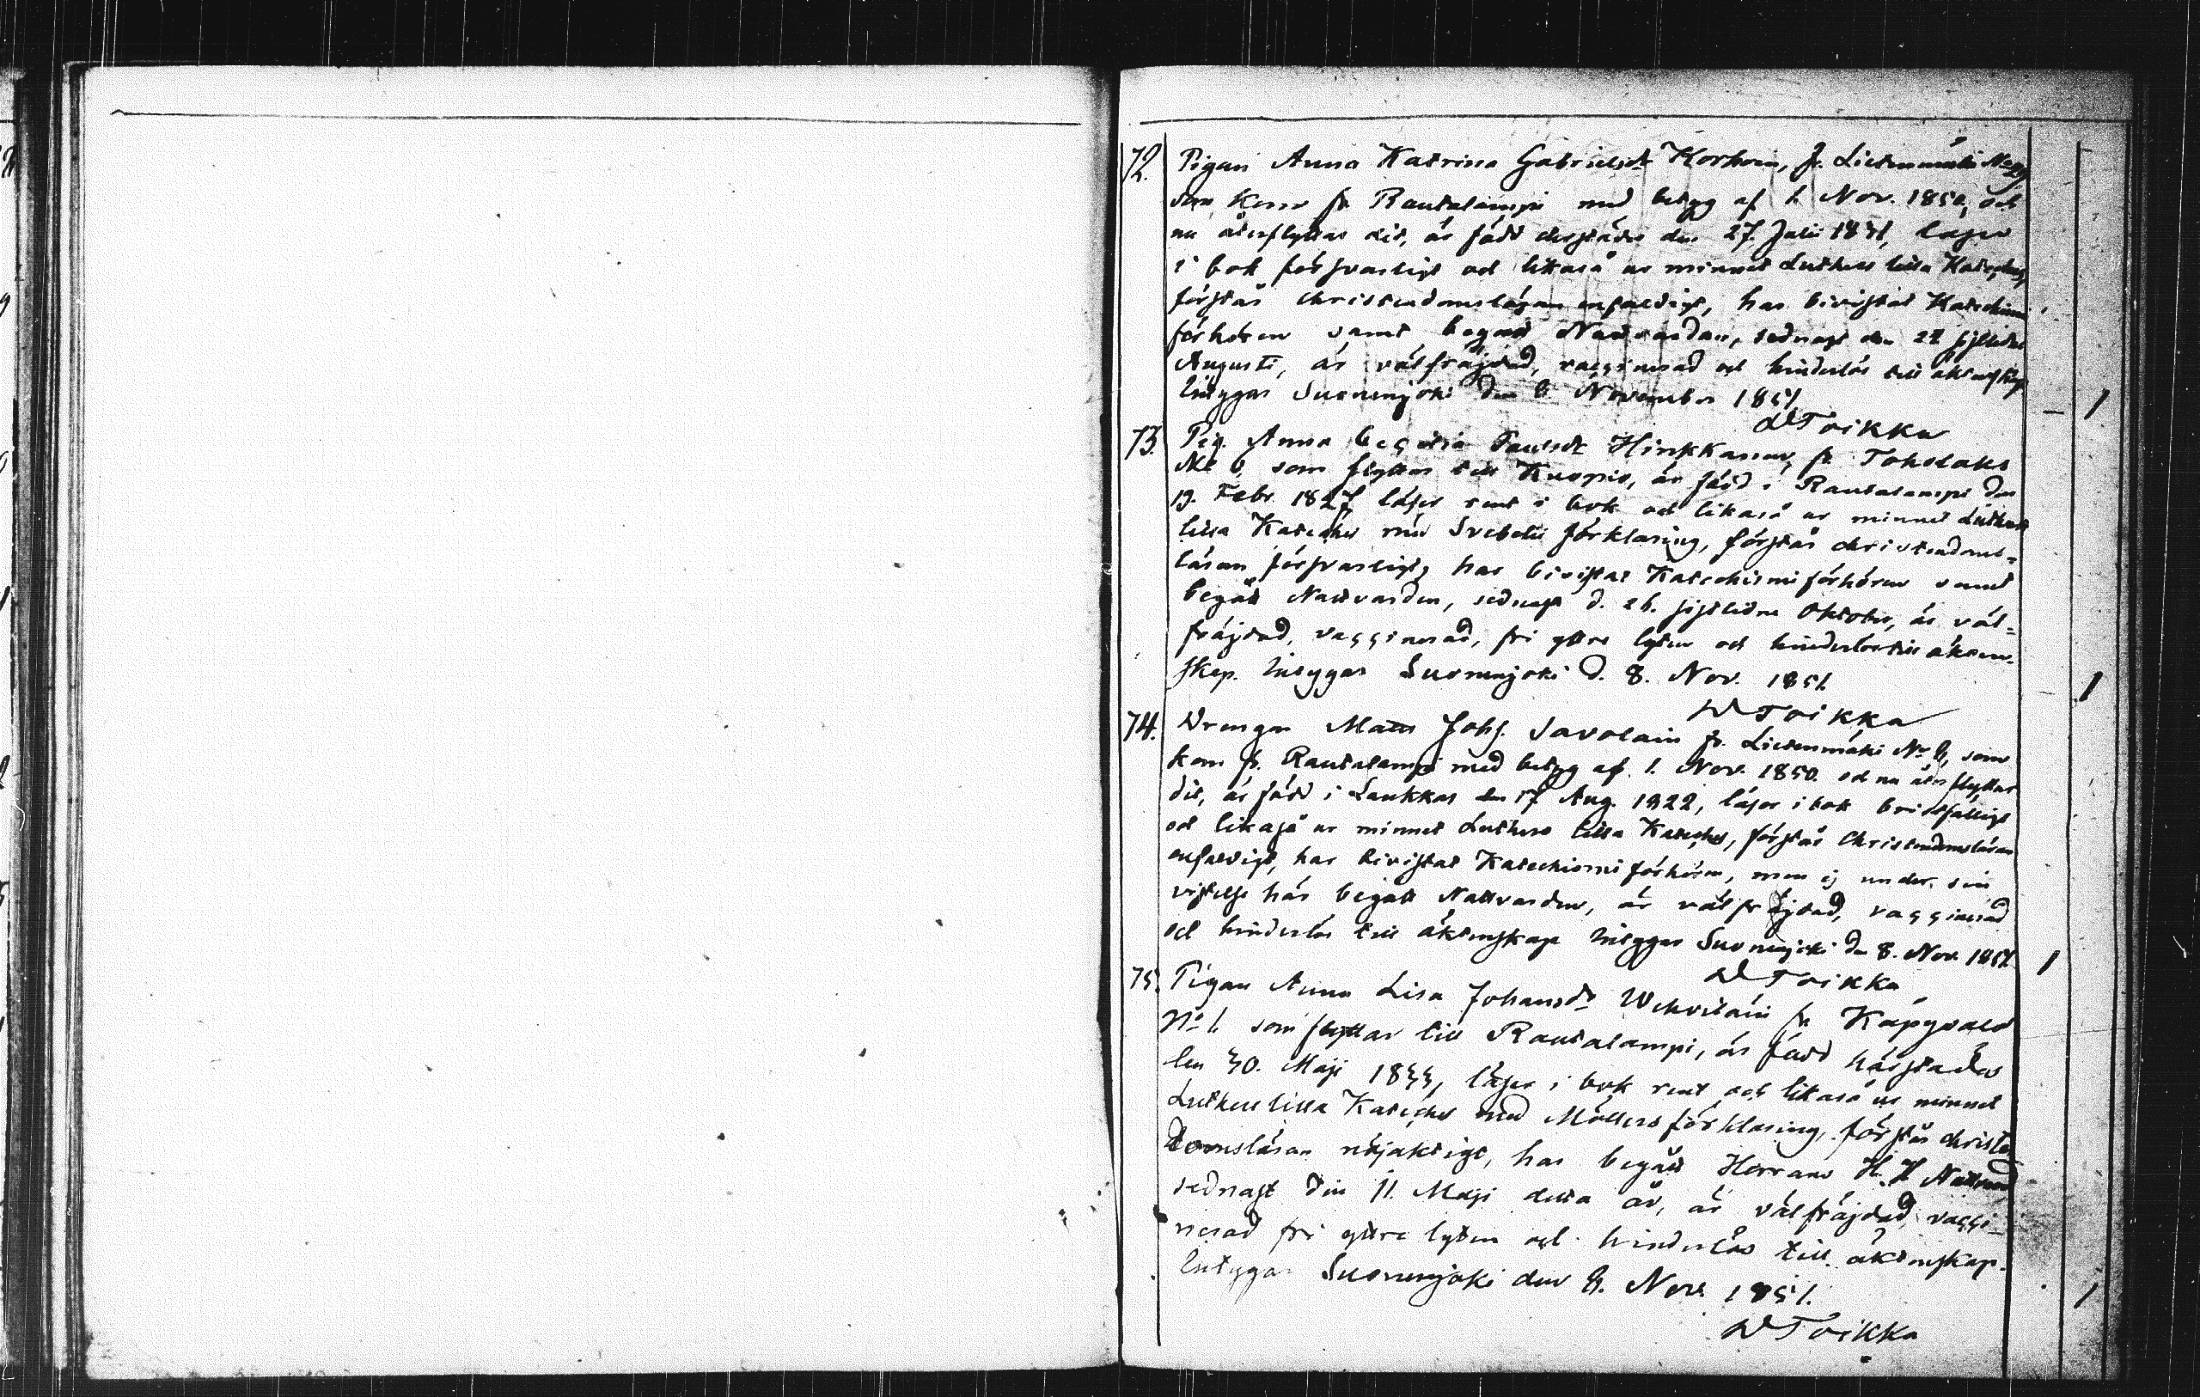 72. Pigan Anna Katrina Gabrielsdr Korhoin, fr. Lietenmäki No
som kom fr Rautalampi med betyg af 1. Nov. 1850, och
nu återflyttar dit, är född dersstädes den 27. Juli 1831, läser
i bok försvarligt och likaså ur minnet Luthers lilla Kateches,
förstår christendomsläran enfaldigt, har bivistat Katechismi
förhören samt begått Nattvarden, sednast den 24 sistledne
Augusti, är välfräjdad, vaccinerad och hinderlös till äktenskap
Intygar Suonenjoki den 8 November 1851.
DToikka
73. Pig. Anna Cecilia Paulsdr Hinkkanen, fr Toholaks
No 6, som flyttar till Kuopio, är född i Rautalampi den
19. Febr. 1827, läser rent i bok och likaså ur minnet Luthers
lilla Kateches med Svebelii förklaring, förstår christendoms-
läran försvarligt, har bivistat Katechismi förhören samt
begått Nattvarden, sednast d. 26. sistledne Oktober, är väl-
fräjdad, vaccinerad, fri yttre lyten och hinderlös till äkten-
skap. Intygar Suonenjoki d. 8. Nov. 1851.
DToikka
74. Drengen Matts Johs. Savolain fr. Lietenmäki No 9, som
kom fr. Rautalampi med betyg af 1. Nov. 1850. och nu återflyttar
dit, är född i Laukkas den 17 Aug. 1822, läser i bok bristfälligt
och likaså ur minnet Luthers lilla Kateches, förstår Christendomsläran
enfaldigt, har bivistat Katechismi förhören, men ej under sin
vistelse här begått Nattvarden, är välfräjdad, vaccinerad
och hinderlös till äktenskap Intygar Suonenjoki den 8. Nov. 1851.
DToikka
75. Pigan Anna Lisa Johansdr Wehviläin fr Käpysalo
No 1. som flyttar till Rautalampi, är född härstädes
den 30. Maji 1833, läser i bok rent och likaså ur minnet
Luthers lilla Kateches med Möllers förklaring, förstår christen
domsläran nöjaktigt, har begått Herrans H. H Nattvard
sednast den 11. Maji detta år, är välfräjdad, vacci-
nerad fri yttre lyten och hinderlös till äktenskap.
Intygar Suonenjoki den 9. Nov. 1851.
DToikka